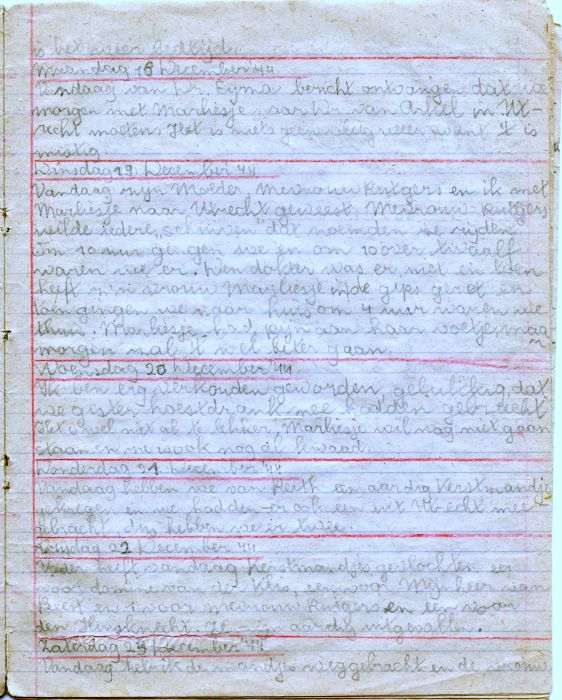 is het weer bedtijd.
Maandag 18 December 44
Vandaag van Dr. Eyma bericht ontvangen dat we
morgen met Marliesje naar Dr. van Arkel in Ut-
recht moeten. Het is niets geen want 't is
mistig.
Dinsdag 19 December 44
Vandaag zijn Moeder, mevrouw Rutgers en ik met
Marliesje naar Utrecht geweest. Mevrouw Rutgers
wilde iedere "schuiven" dat noemden we rijden.
Om 10 uur gingen we en om 10 over twaalf
waren we er. Den dokter was er niet en toen
heeft z'n vrouw Marliesje in de gips gezet en
toen gingen we naar huis om 4 uur waren we
thuis. Marliesje had pijn aan haar voetje, maar
morgen zal 't wel beter gaan.
Woensdag 20 December '44
Ik ben erg verkouden geworden, gelukkig dat
we gister hoestdrank mee hadden gebracht
Het is wel niet al te lekker. Marliesje wil nog niet gaan
staan en me is ook nog al kwaad.
Donderdag 21 December '44
Vandaag hebben we van Reith een aardig kerstmandje
gekregen en we hadden er ook een uit Utrecht mee
gebracht, dus hebben we er twee.
Vrijdag 22 December '44
Vader heeft vandaag kerstmandjes gevlochten een
voor dominee van der Klis, een voor Mijnheer van
Beest en 1 voor mevrouw Rutgers en een voor
den Huisknecht. Ze zijn aardig uitgevallen.
Zaterdag 23 December '44
Vandaag heb ik de mandjes weggebracht en de